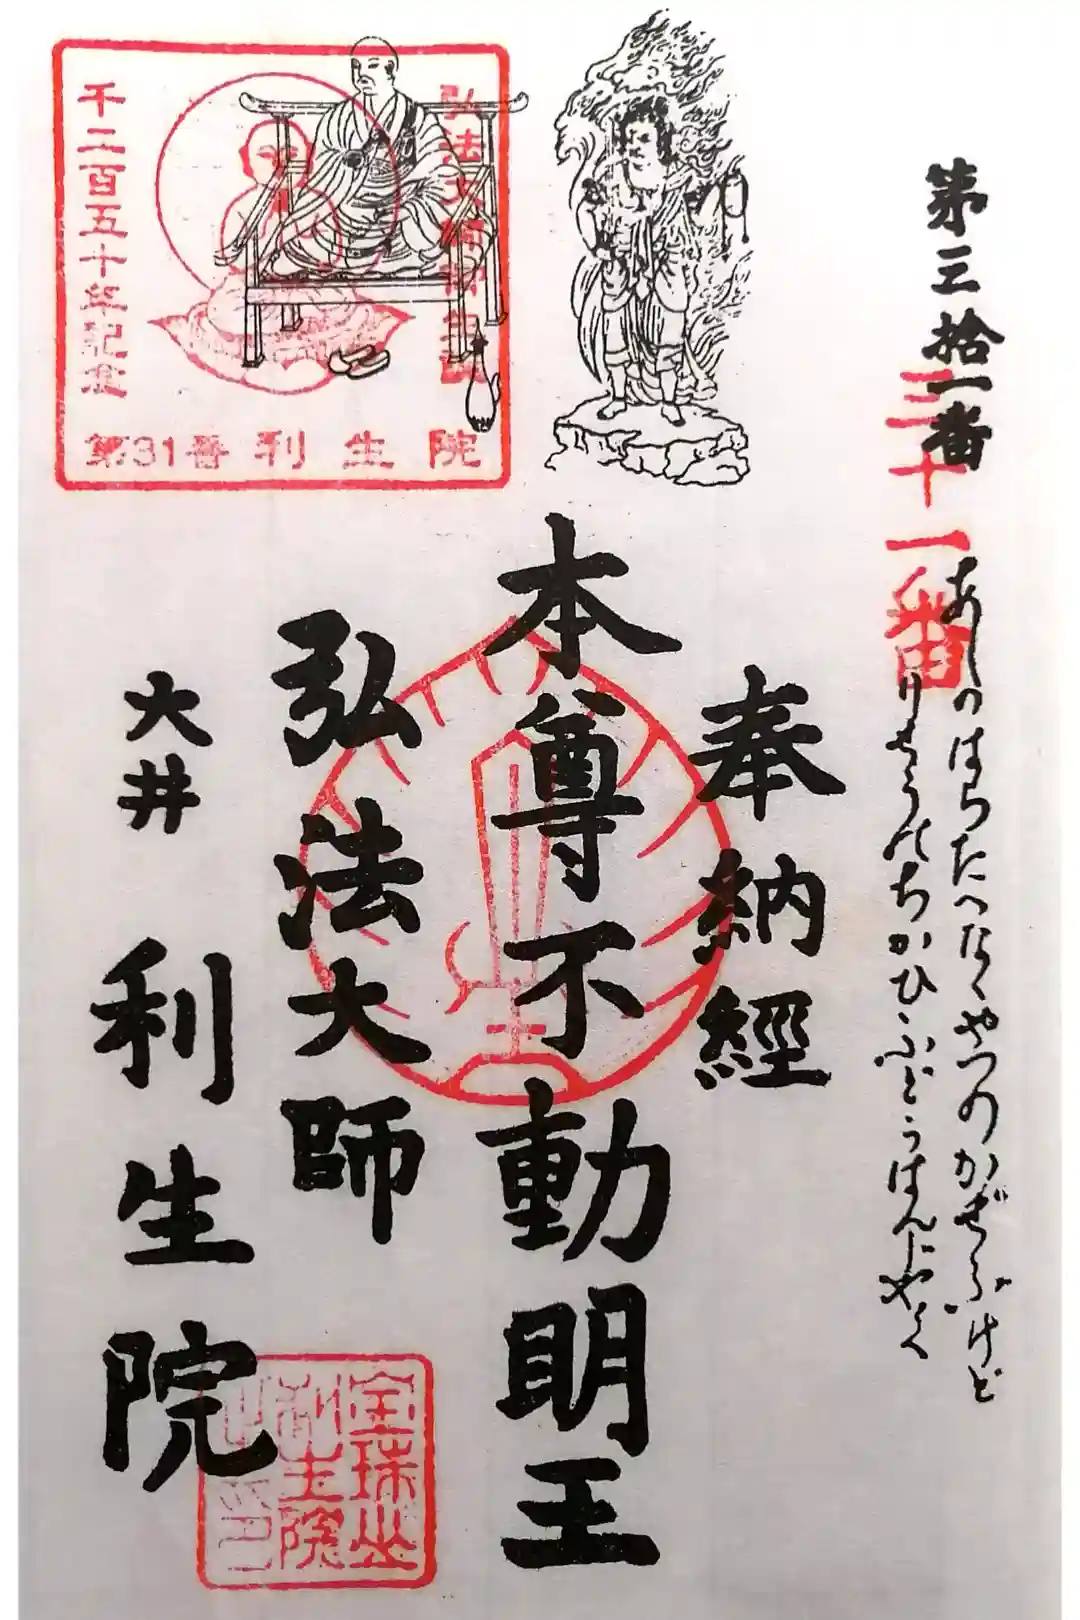 第三拾一番
三十一番
あしのはらたへなくやつのかぜふけど
りせうのちかひふどうはんじやく
奉納經
本尊不動明王
弘法大師
大井 利生院
弘法大師御生誕
千二百五十年記念
第31番 利生院
宝珠山
利生院